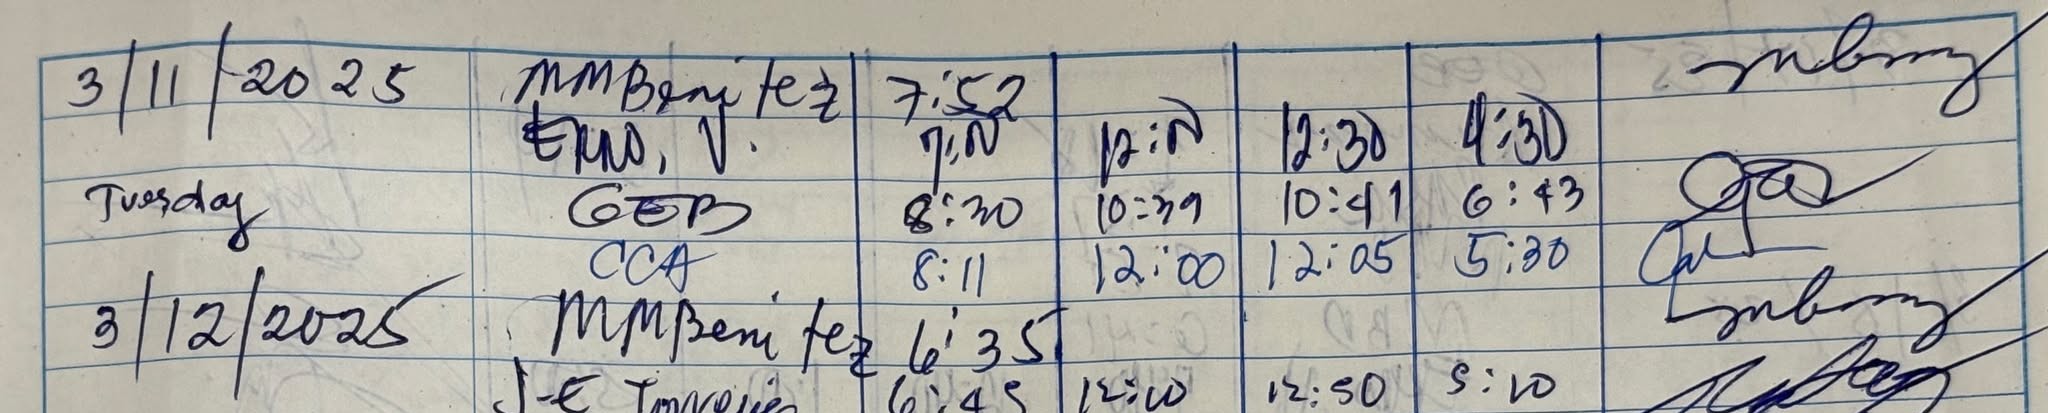 3/11/2025 MMBenitez 7:52
V. 7:N 12:N 12:30 4:30
Tuesday GEB 8:30 10:39 10:41 6:43
CCA 8:11 12:00 12:05 5:30
3/12/2025 MMBenitez 6:35
J-E 6:45 12:10 12:50 5:10